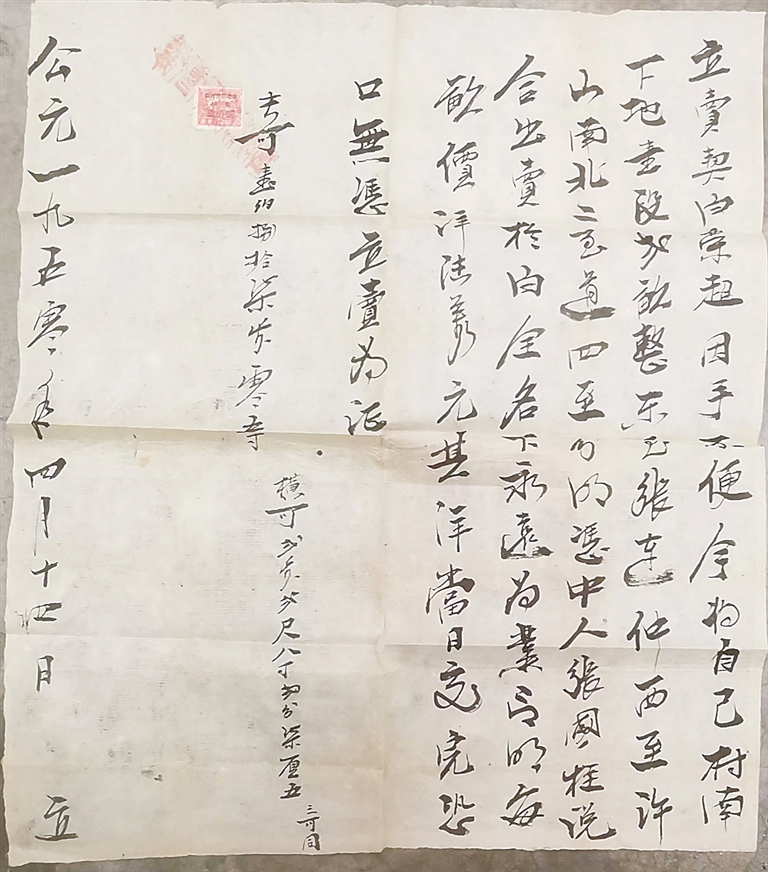 立賣契白荣超因手不便今將自己村南
下地壹段弍畝整东至張連仲西至許
山南北二至道四至分明憑中人張國柱说
合出賣於白全名下永遠为業言明每
畝價洋陆萬元其洋當日交完恐
口無憑立賣为证
長可壹佰捌拾柒步零 
橫可弍步弍尺八寸四分柒厘五
三可同
公元一九五零年四月十四日 立